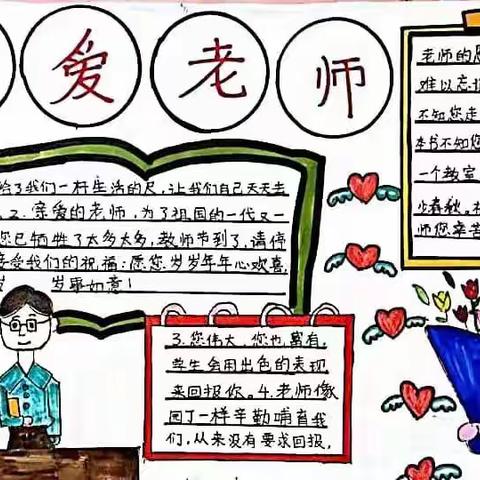 爱老师
给了我们一杆生活的尺,让我们自己天天去
2.亲爱的老师,为了祖国的一代又一
您已牺牲了太多太多,教师节到了,请停
接受我们的祝福:愿您岁岁年年心欢喜,
岁事如意!
3.您伟大,您也
学生会用出色的表现
来回报你。4.老师像
园丁一样辛勤哺育我
们,从来没有要求回报。
老师的
难以忘
不知您走
本书不知您
一个教室
少春秋。
师您辛苦